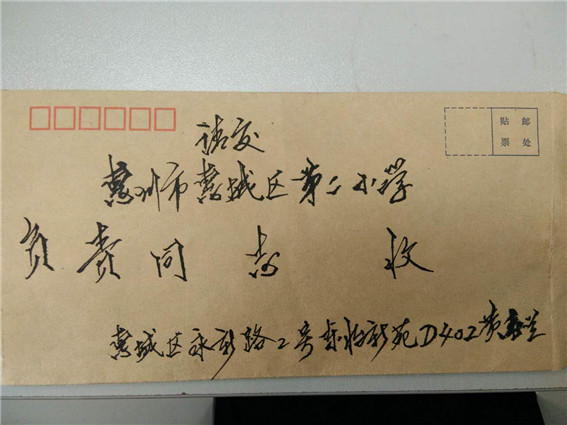 贴邮
票处
请交
惠州市惠城区第二小学
负责同志 收
惠城区永新路2号东怡新苑D402黄